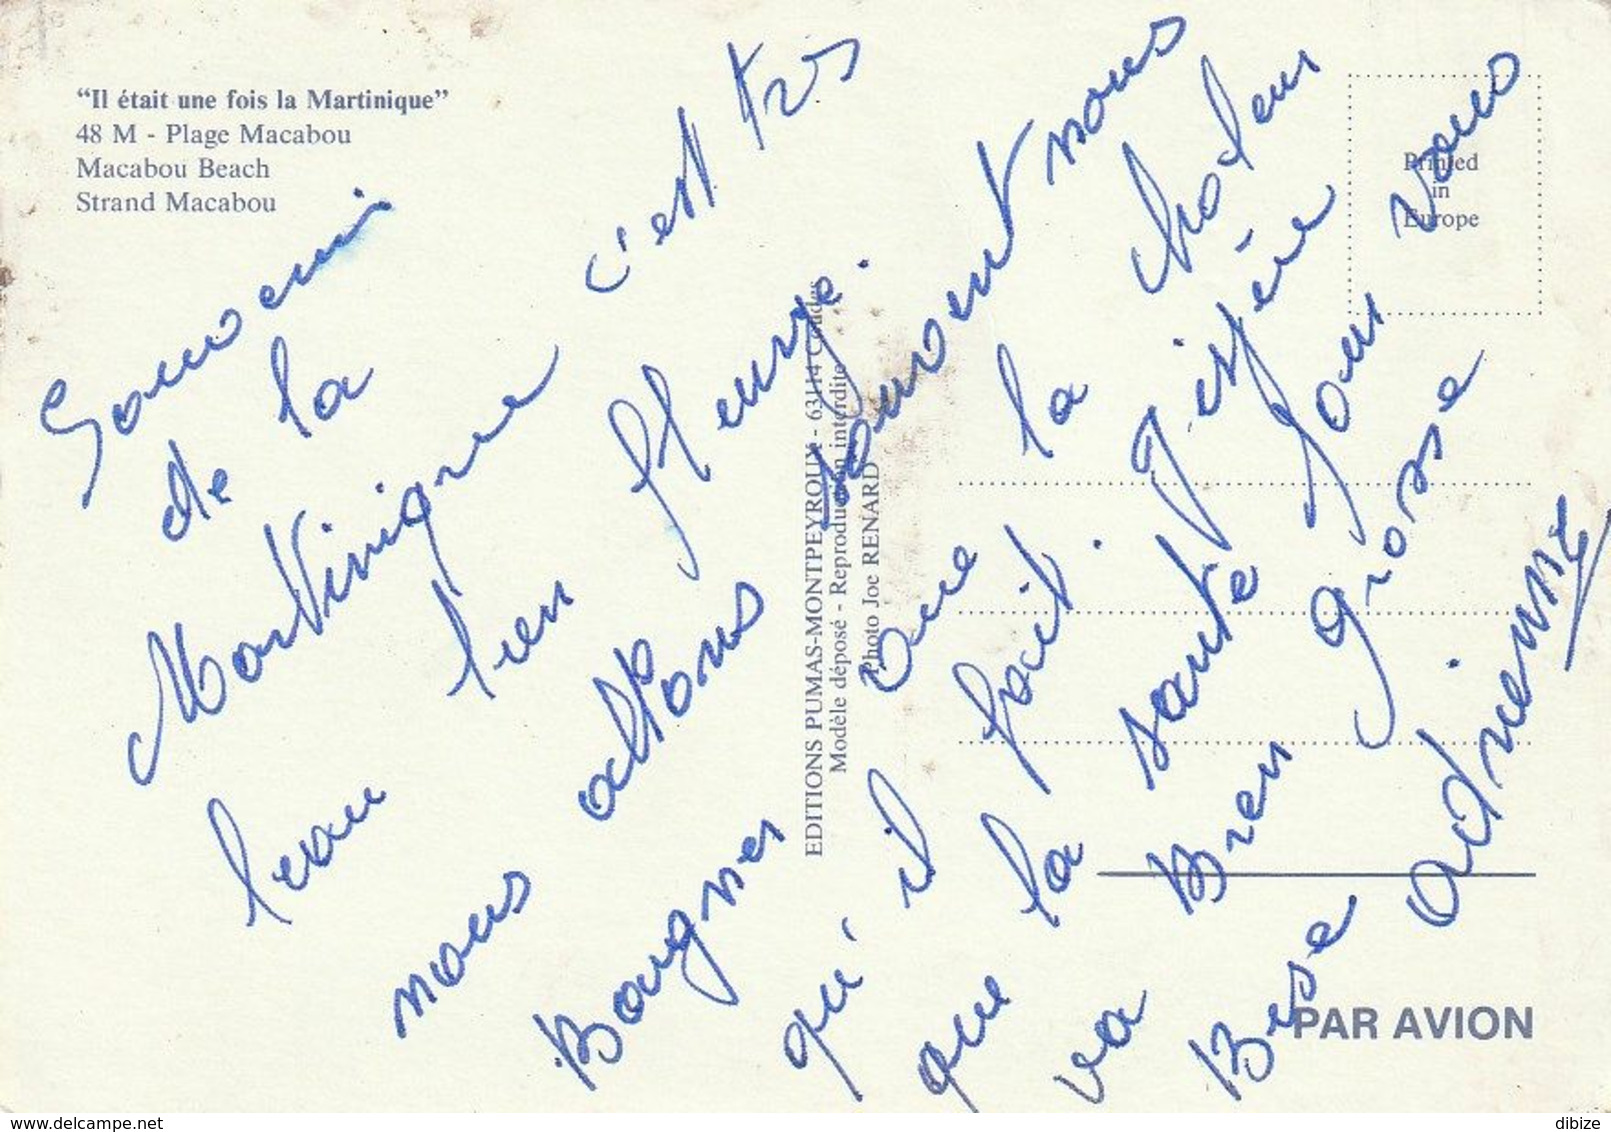 "Il était une fois la Martinique"
48 M - Plage Macabou
Macabou Beach
Strand Macabou
Printed
in
Europe
EDITIONS PUMAS-MONTPEYROUX - 63114
Modèle déposé - Reproduction interdite
Photo Joe RENARD
PAR AVION
Souvenir
de la
Martinique c'est tres
beau bien
nous allons souvent nous
Bagner avec la chaleur
qu'il fait. j'espère
que la sante pour vous
va Bien grosse
Bise adrienne
delcampe.net
dibize